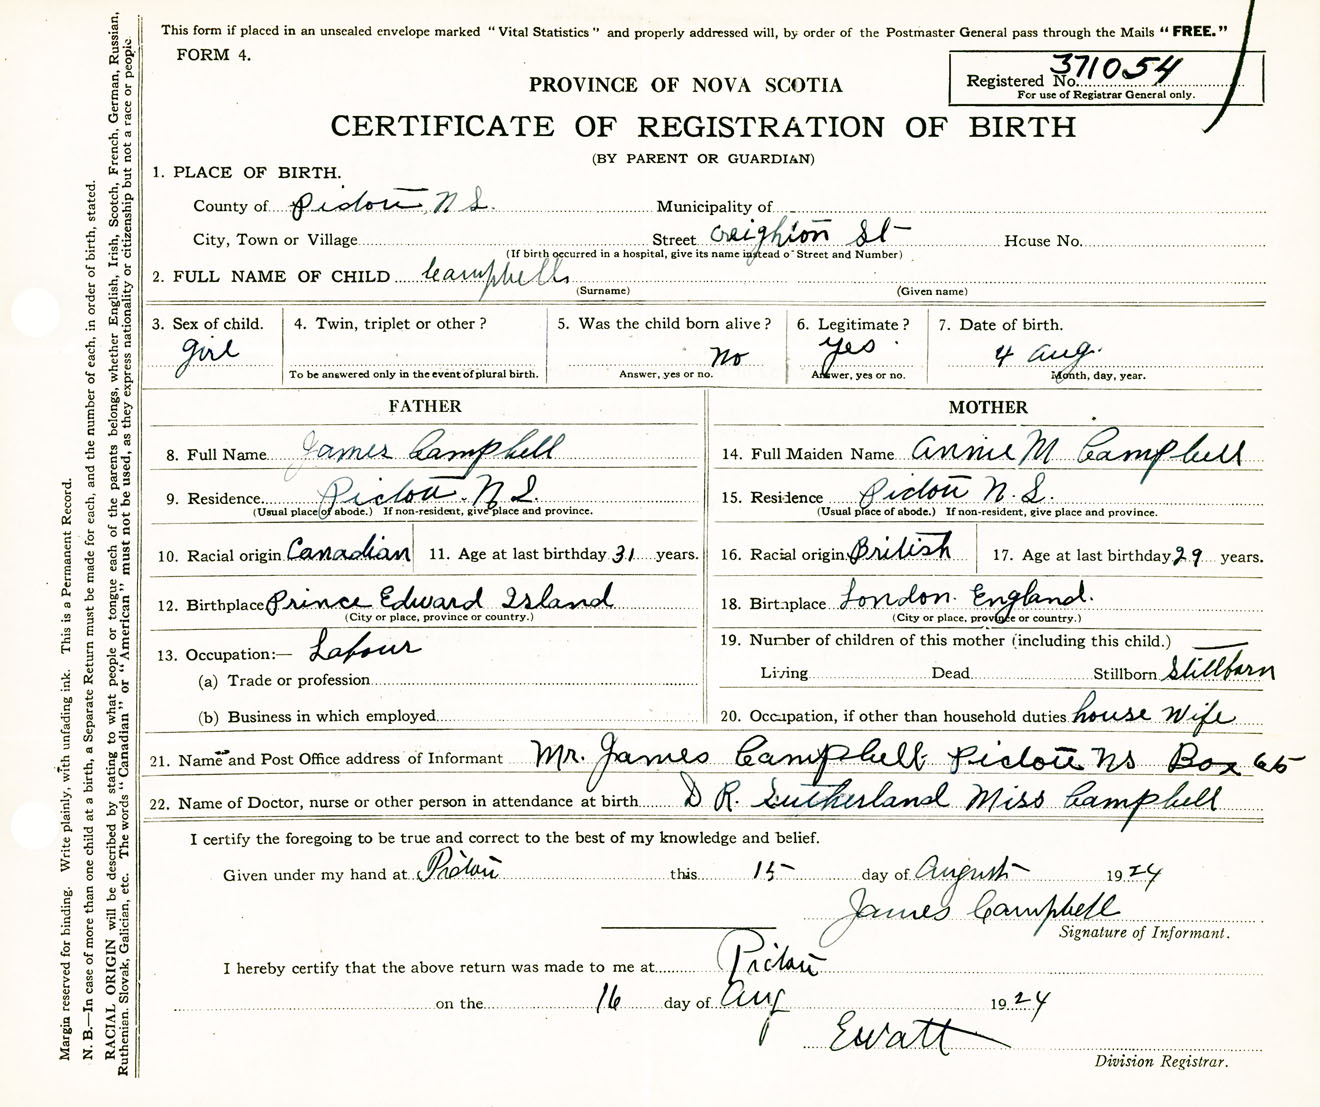 This form if placed in an unscaled envelope marked "Vital Statistics" and properly addressed will, by order of the Postmaster General pass through the Mails "FREE."
FORM 4.
Registered No. 371054
For use of Registrar General only.
PROVINCE OF NOVA SCOTIA
CERTIFICATE OF REGISTRATION OF BIRTH
(BY PARENT OR GUARDIAN)
1. PLACE OF BIRTH.
County of Pictou, N S. Municipality of
City, Town or Village Street Creighton St House No.
(If birth occurred in a hospital, give its name instead of Street and Number)
2. FULL NAME OF CHILD Campbell
(Surname) (Given name)
3. Sex of child. 4. Twin, triplet or other? 5. Was the child born alive? 6. Legitimate? 7. Date of birth.
girl no yes. 4 Aug.
To be answered only in the event of plural birth. Answer, yes or no. Answer, yes or no. Month, day, year.
FATHER
8. Full Name James Campbell
9. Residence Pictou. N.S.
(Usual place of abode.) If non-resident, give place and province.
10. Racial origin Canadian 11. Age at last birthday 31 years.
12. Birthplace Prince Edward Island
(City or place, province or country.)
13. Occupation:— Labour
(a) Trade or profession
(b) Business in which employed
MOTHER
14. Full Maiden Name Annie M Campbell
15. Residence Pictou N.S.
(Usual place of abode.) If non-resident, give place and province.
16. Racial origin British 17. Age at last birthday 29 years.
18. Birthplace London. England.
(City or place, province or country.)
19. Number of children of this mother (including this child.)
Living Dead Stillborn Stillborn
20. Occupation, if other than household duties house Wife
21. Name and Post Office address of Informant Mr. James Campbell Pictou NS Box 65
22. Name of Doctor, nurse or other person in attendance at birth D R. Sutherland Miss Campbell
I certify the foregoing to be true and correct to the best of my knowledge and belief.
Given under my hand at Pictou this 15 day of August 1924
James Campbell
Signature of Informant.
I hereby certify that the above return was made to me at Pictou
on the 16 day of Aug 1924
E Watt
Division Registrar.
Margin reserved for binding. Write plainly, with unfading ink. This is a Permanent Record.
N. B.—In case of more than one child at a birth, a Separate Return must be made for each, and the number of each, in order of birth, stated.
RACIAL ORIGIN will be described by stating to what people or tongue each of the parents belongs, whether English, Irish, Scotch, French, German, Russian,
Ruthenian, Slovak, Galician, etc. The words "Canadian" or "American" must not be used, as they express nationality or citizenship but not a race or people.